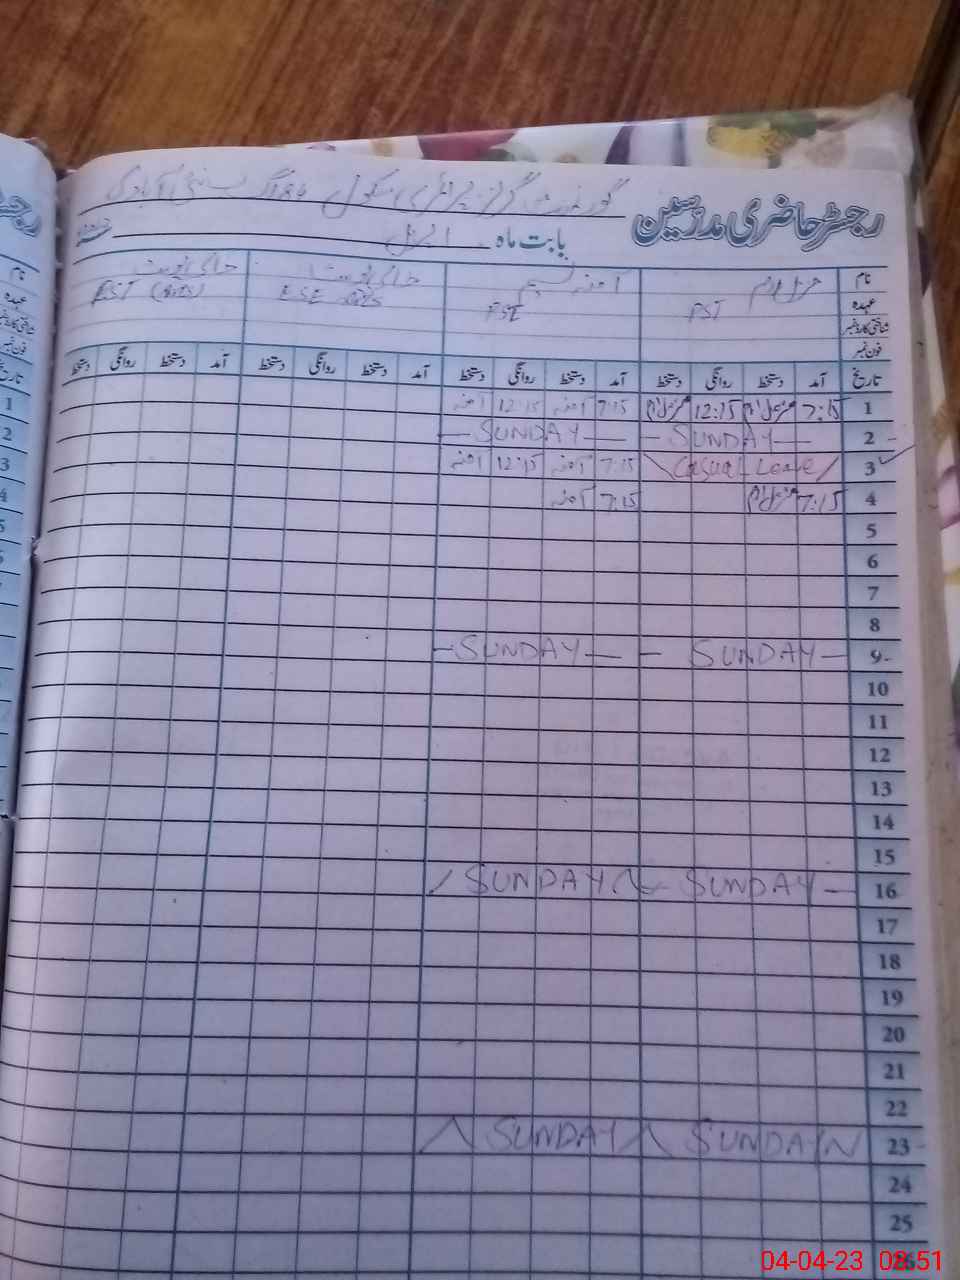 رجسٹر حاضری مدرسین گورنمنٹ گرلز پرائمری سکول
بابت ماہ اپریل
نام
عہدہ PST ESE ESE PST
شناختی کارڈ نمبر
فون نمبر
تاریخ آمد دستخط روانگی دستخط آمد دستخط روانگی دستخط آمد دستخط روانگی دستخط آمد دستخط روانگی دستخط
1 7:15 12:15 7:15 آمنہ 12:15 آمنہ
2 SUNDAY SUNDAY
3 Casual Leave 7:15 آمنہ 12:15 آمنہ
4 7:15 7:15 آمنہ
5
6
7
8
9 SUNDAY SUNDAY
10
11
12
13
14
15
16 SUNDAY SUNDAY
17
18
19
20
21
22
23 SUNDAY SUNDAY
24
25
26
04-04-23 08:51